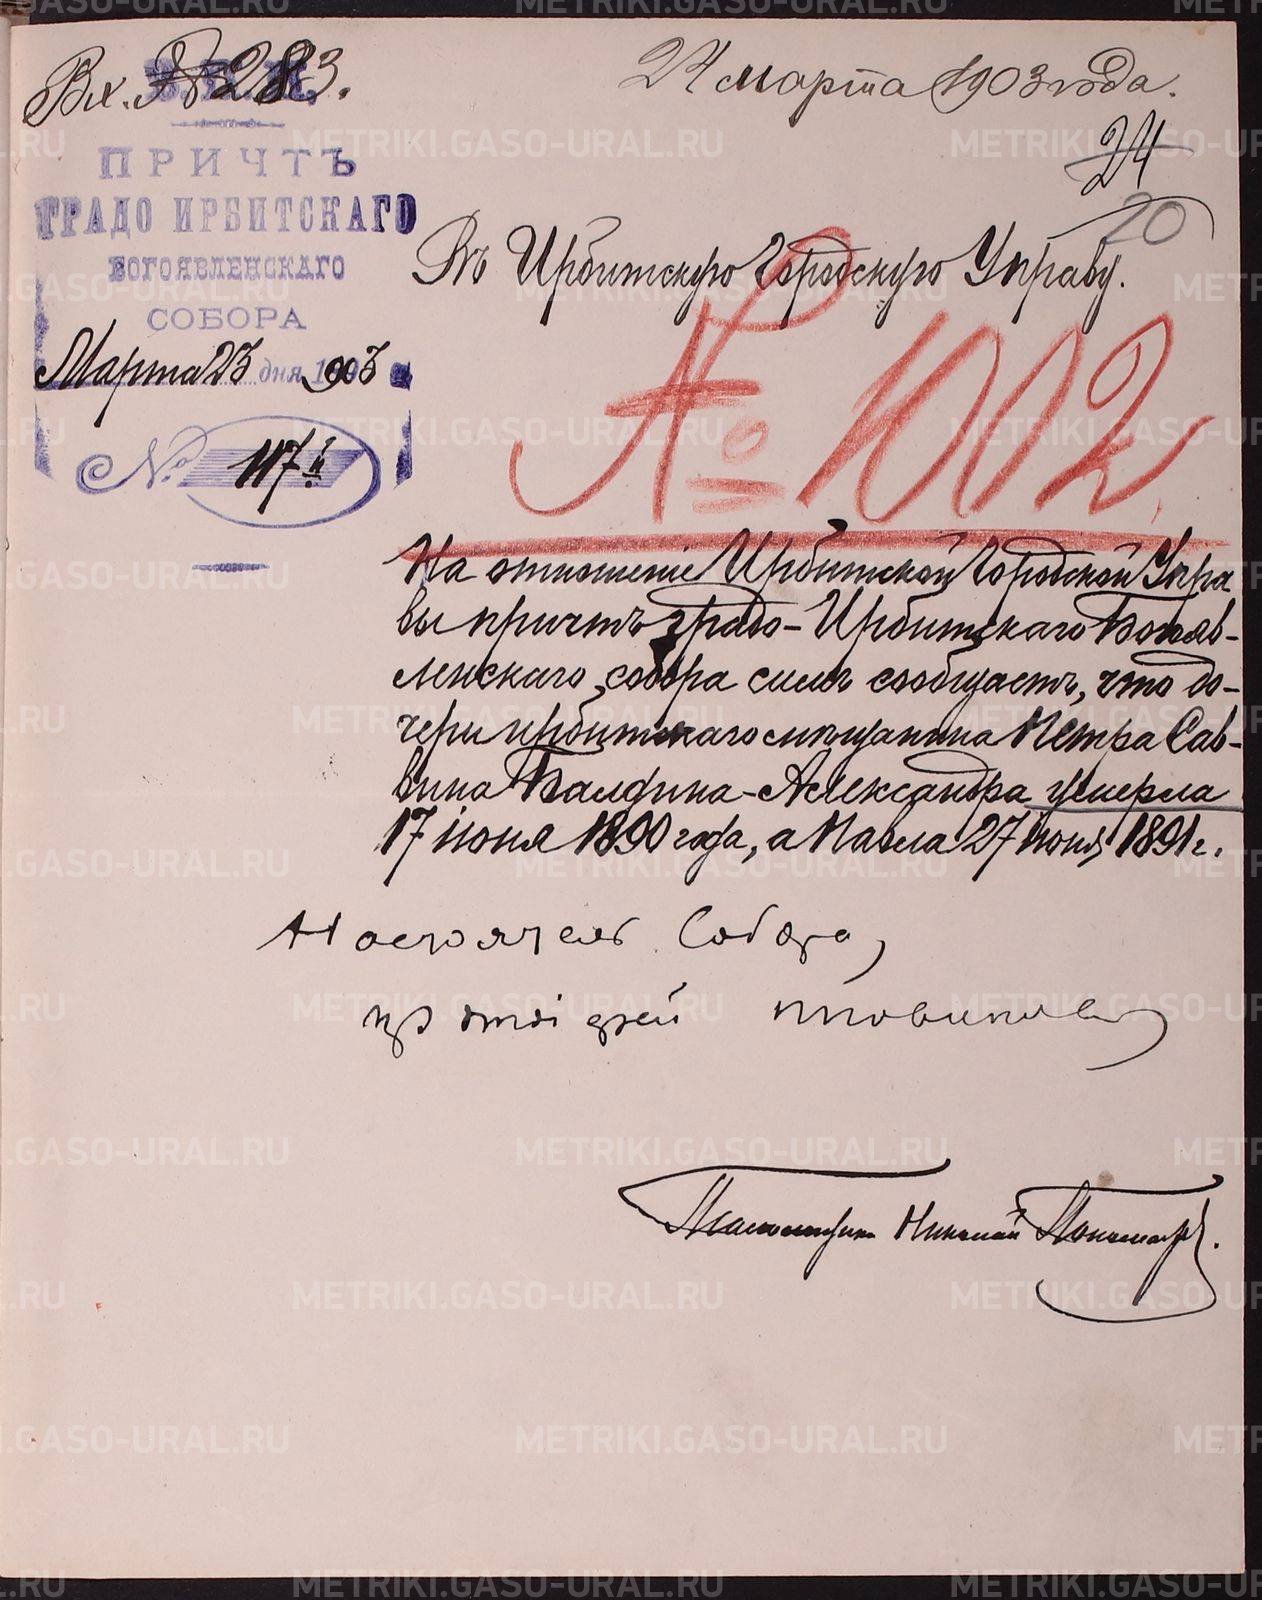 Вх. № 283.
24 марта 1903 года.
24
20
ПРИЧТЪ
ГРАДО ИРБИТСКАГО
БОГОЯВЛЕНСКАГО
СОБОРА
Марта 23 дня 1903
№ 117
Въ Ирбитскую Городскую Управу.
№ 1002.
На отношеніе Ирбитской Городской Упра
вы причтъ градо-Ирбитскаго Богояв-
ленскаго собора симъ сообщаетъ, что до-
чери ирбитскаго мѣщанина Петра Сав-
вина Балдина - Александра умерла
17 іюня 1890 года, а Павла 27 іюня 1891 г.
Настоятель Собора,
протоіерей
Николай
METRIKI.GASO-URAL.RU